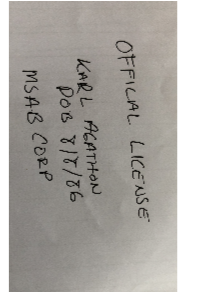 OFFICIAL LICENSE
KARL AGATHON
DOB 8/8/86
MSAB CORP